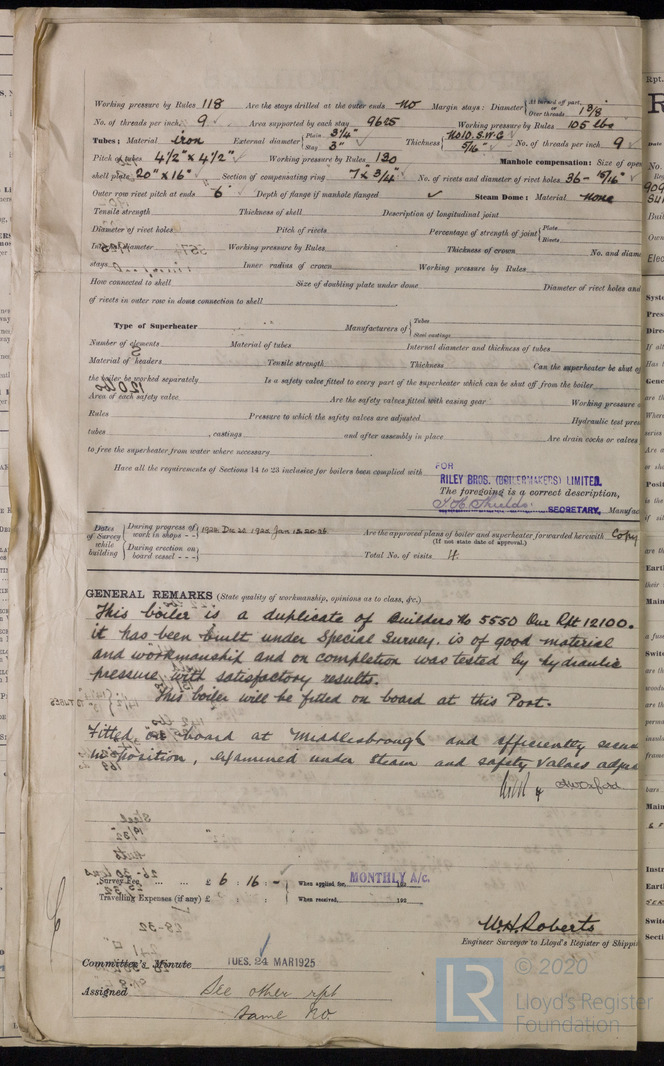 Working pressure by Rules 118 Are the stays drilled at the outer ends No Margin stays: Diameter { At turned off part, or Over threads 1 3/8"
No. of threads per inch 9 Area supported by each stay 96.25 Working pressure by Rules 105 lbs
Tubes: Material iron External diameter { Plain 3 1/4" Stay 3" Thickness { No 10. S.W.G 5/16" No. of threads per inch 9
Pitch of tubes 4 1/2" x 4 1/2" Working pressure by Rules 130 Manhole compensation: Size of open
shell plate 20" x 16" Section of compensating ring 7" x 3/4" No. of rivets and diameter of rivet holes 36 - 15/16"
Outer row rivet pitch at ends 6" Depth of flange if manhole flanged Steam Dome: Material None
Tensile strength Thickness of shell Description of longitudinal joint
Diameter of rivet holes Pitch of rivets Percentage of strength of joint { Plate Rivets
Internal diameter Working pressure by Rules Thickness of crown No. and diame
stays Inner radius of crown Working pressure by Rules
How connected to shell Size of doubling plate under dome Diameter of rivet holes and
of rivets in outer row in dome connection to shell
Type of Superheater Manufacturers of { Tubes Steel castings
Number of elements Material of tubes Internal diameter and thickness of tubes
Material of headers Tensile strength Thickness Can the superheater be shut of
the boiler be worked separately Is a safety valve fitted to every part of the superheater which can be shut off from the boiler
Area of each safety valve Are the safety valves fitted with easing gear Working pressure
Rules Pressure to which the safety valves are adjusted Hydraulic test pres
tubes , castings and after assembly in place Are drain cocks or valves
to free the superheater from water where necessary
Have all the requirements of Sections 14 to 23 inclusive for boilers been complied with
FOR
RILEY BROS. (BOILERMAKERS) LIMITED.
The foregoing is a correct description,
SECRETARY. Manufac
Dates of Survey while building { During progress of work in shops - - } 1924. Dec 22 1925 Jan 15. 20. 26 Are the approved plans of boiler and superheater forwarded herewith Copy
(If not state date of approval.)
{ During erection on board vessel - - - } Total No. of visits 4.
GENERAL REMARKS (State quality of workmanship, opinions as to class, &c.)
This boiler is a duplicate of Builders No 5550 Our Rpt 12100.
it has been built under Special Survey. is of good material
and workmanship and on completion was tested by hydraulic
pressure with satisfactory results.
This boiler will be fitted on board at this Port.
Fitted on board at Middlesbrough and efficiently secu
in position, examined under steam and safety valves adjus
Survey Fee ... ... £ 6 : 16 : - When applied for, MONTHLY A/c. 192
Travelling Expenses (if any) £ : : When received, 192
W.H. Roberts
Engineer Surveyor to Lloyd's Register of Shippi
Committee's Minute TUES. 24 MAR 1925
Assigned See other rpt
same No.
LR © 2020
Lloyd's Register
Foundation